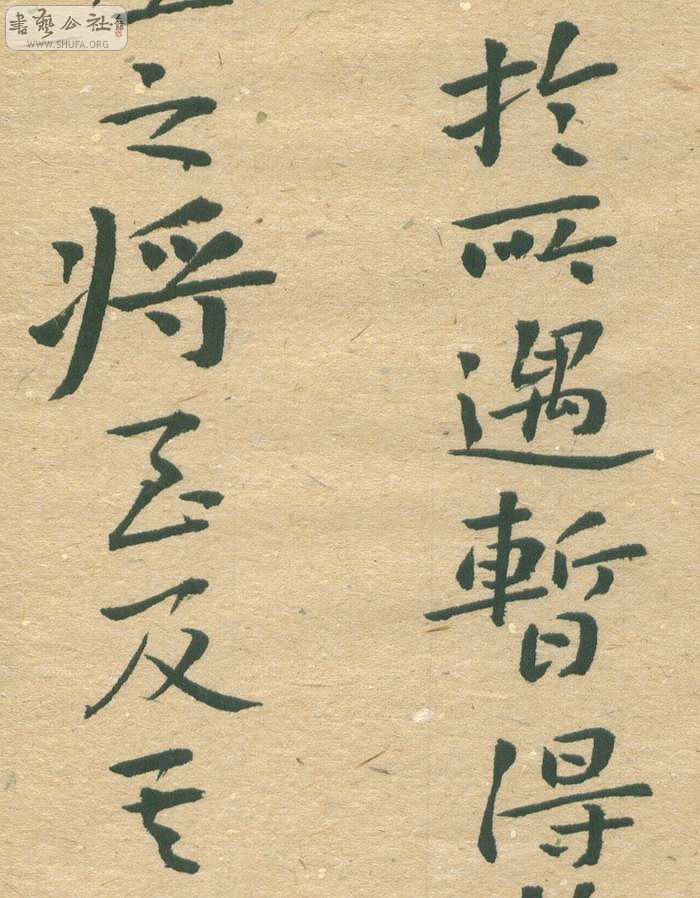 於所遇暫得
之將至及其
書藝公社
WWW.SHUFA.ORG